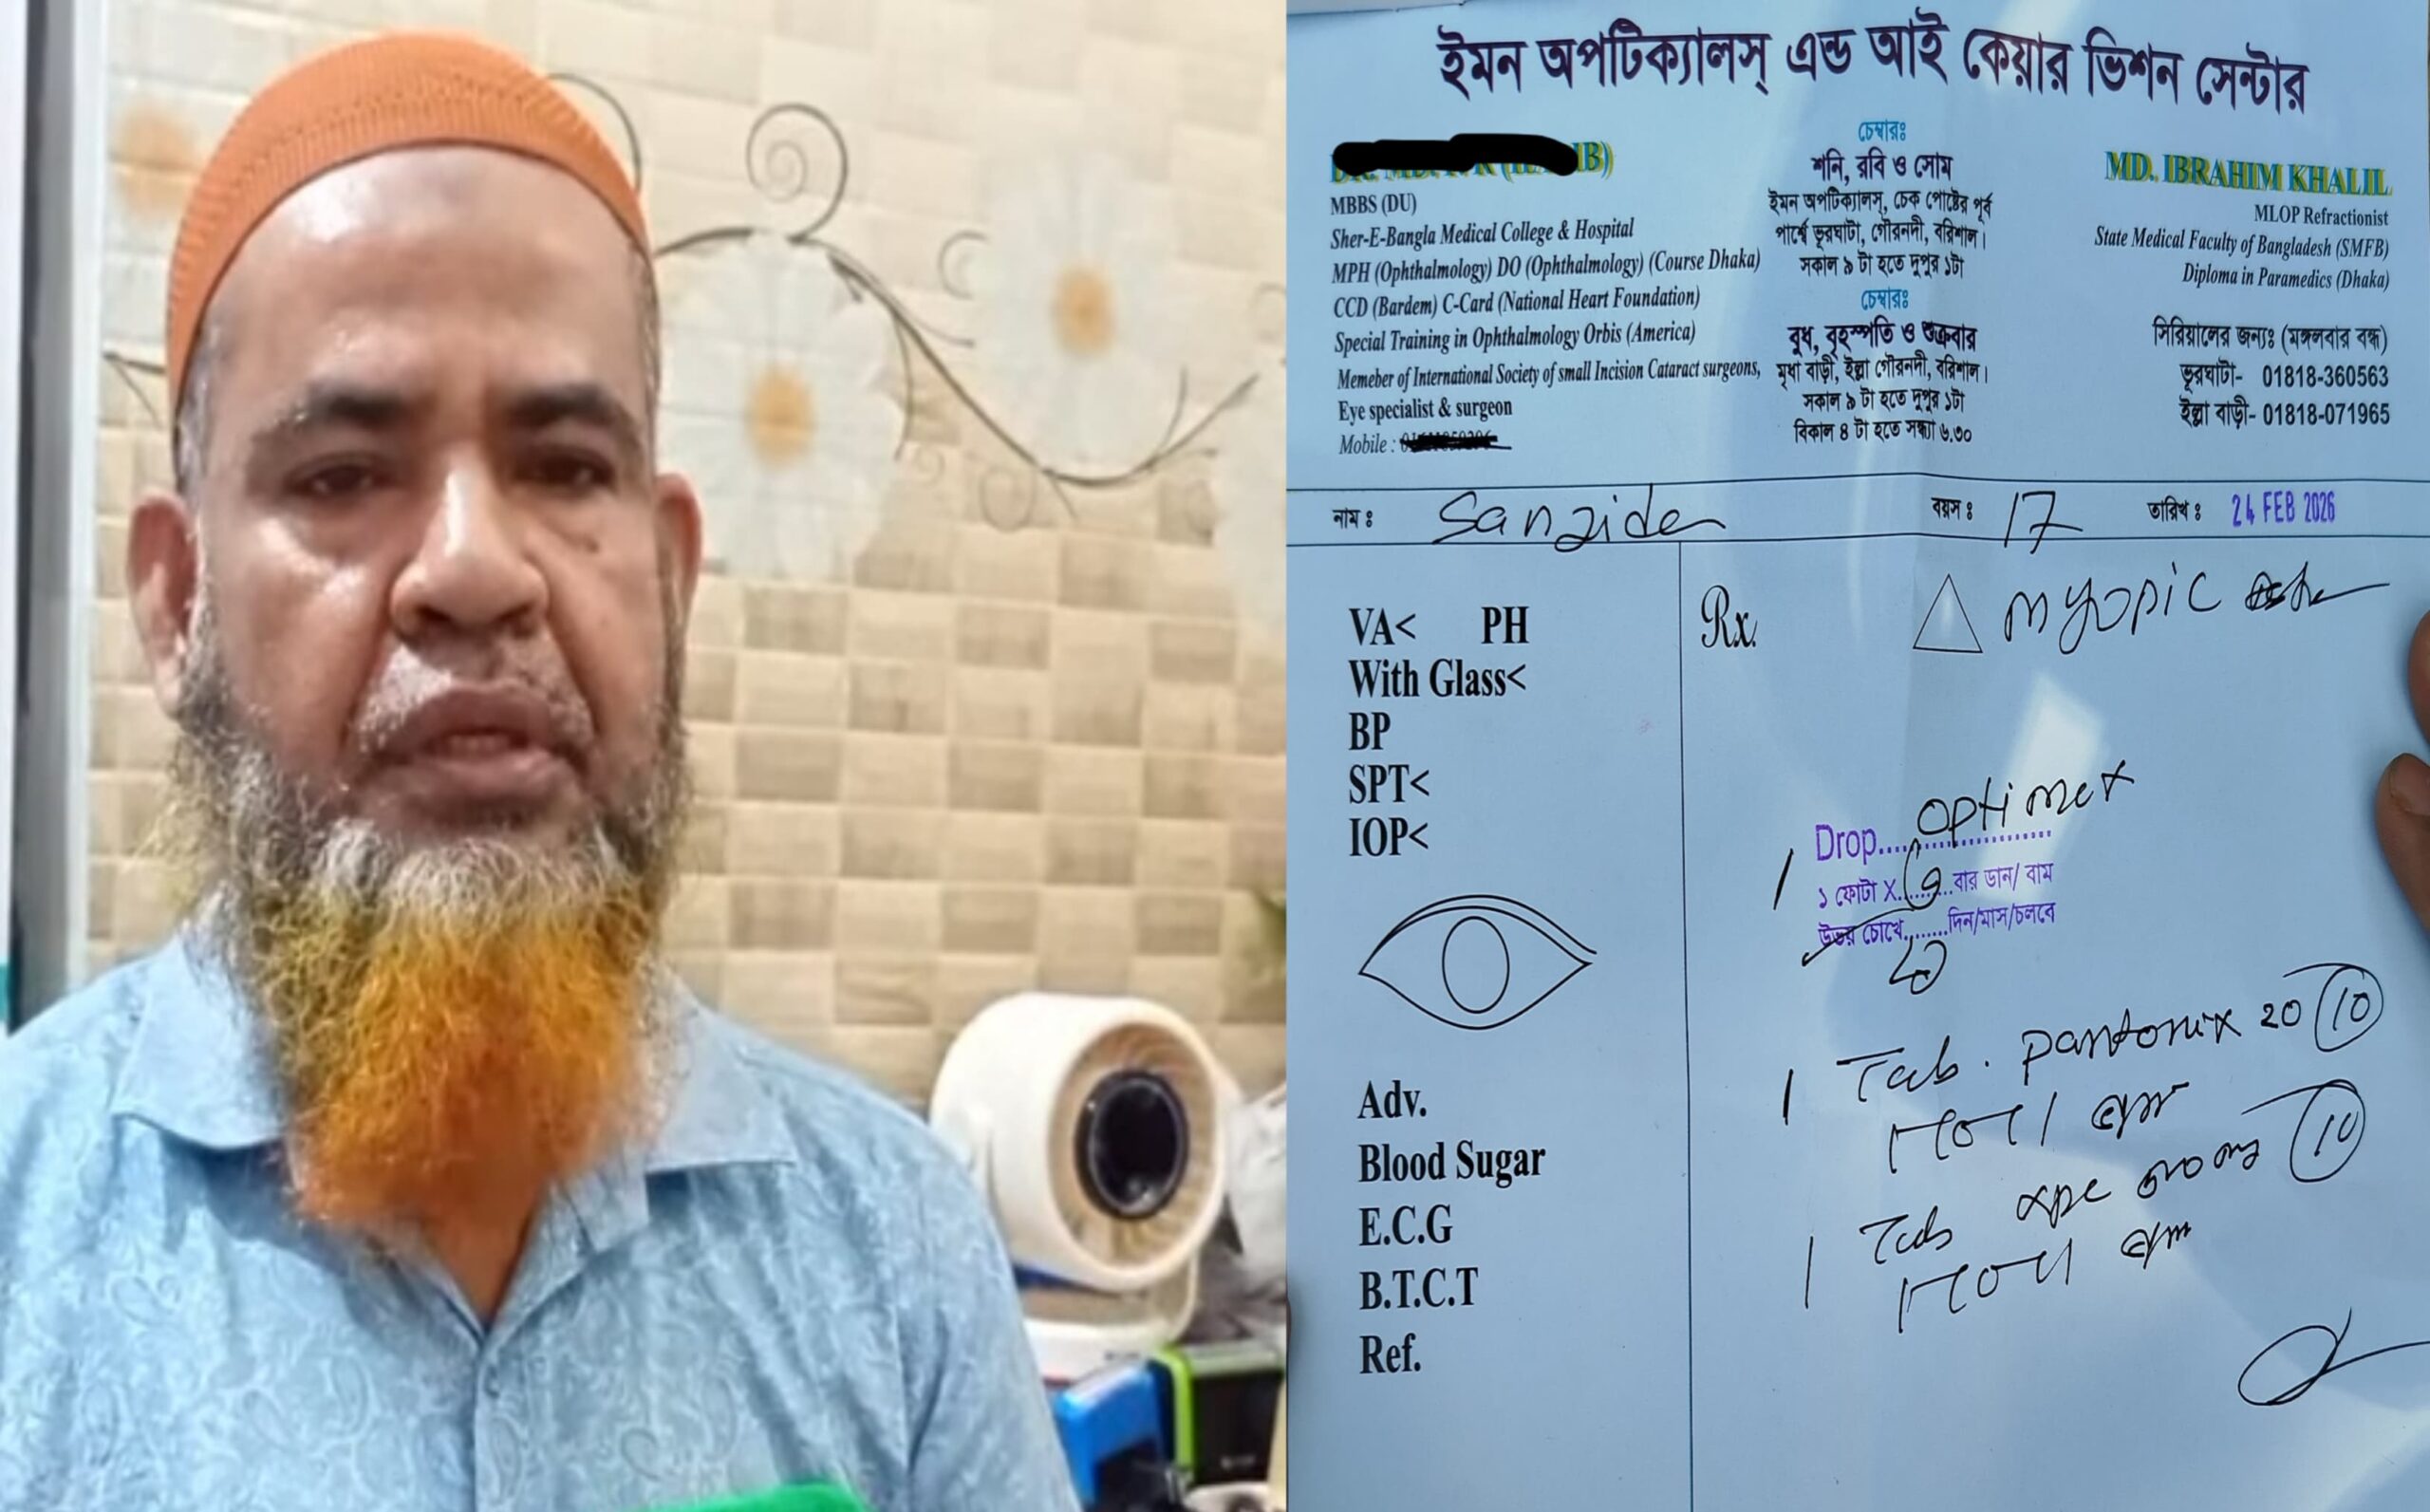 ইমন অপটিক্যালস্ এন্ড আই কেয়ার ভিশন সেন্টার
IB)
MBBS (DU)
Sher-E-Bangla Medical College & Hospital
MPH (Ophthalmology) DO (Ophthalmology) (Course Dhaka)
CCD (Bardem) C-Card (National Heart Foundation)
Special Training in Ophthalmology Orbis (America)
Memeber of International Society of small Incision Cataract surgeons,
Eye specialist & surgeon
Mobile :
চেম্বারঃ
শনি, রবি ও সোম
ইমন অপটিক্যালস্, চেক পোষ্টের পূর্ব
পার্শ্বে ভূরঘাটা, গৌরনদী, বরিশাল।
সকাল ৯ টা হতে দুপুর ১টা
চেম্বারঃ
বুধ, বৃহস্পতি ও শুক্রবার
মৃধা বাড়ী, ইল্লা গৌরনদী, বরিশাল।
সকাল ৯ টা হতে দুপুর ১টা
বিকাল ৪ টা হতে সন্ধ্যা ৬.৩০
MD. IBRAHIM KHALIL
MLOP Refractionist
State Medical Faculty of Bangladesh (SMFB)
Diploma in Paramedics (Dhaka)
সিরিয়ালের জন্যঃ (মঙ্গলবার বন্ধ)
ভূরঘাটা- 01818-360563
ইল্লা বাড়ী- 01818-071965
নাম ঃ Sanzida বয়স ঃ 17 তারিখ ঃ 24 FEB 2026
VA< PH
With Glass<
BP
SPT<
IOP<
Adv.
Blood Sugar
E.C.G
B.T.C.T
Ref.
Rx.
△ Myopic
Drop.... Optimox
১ ফোটা X........বার ডান/ বাম
উভয় চোখে........দিন/মাস/চলবে
Tab. Pantonix 20 10
Tab 10